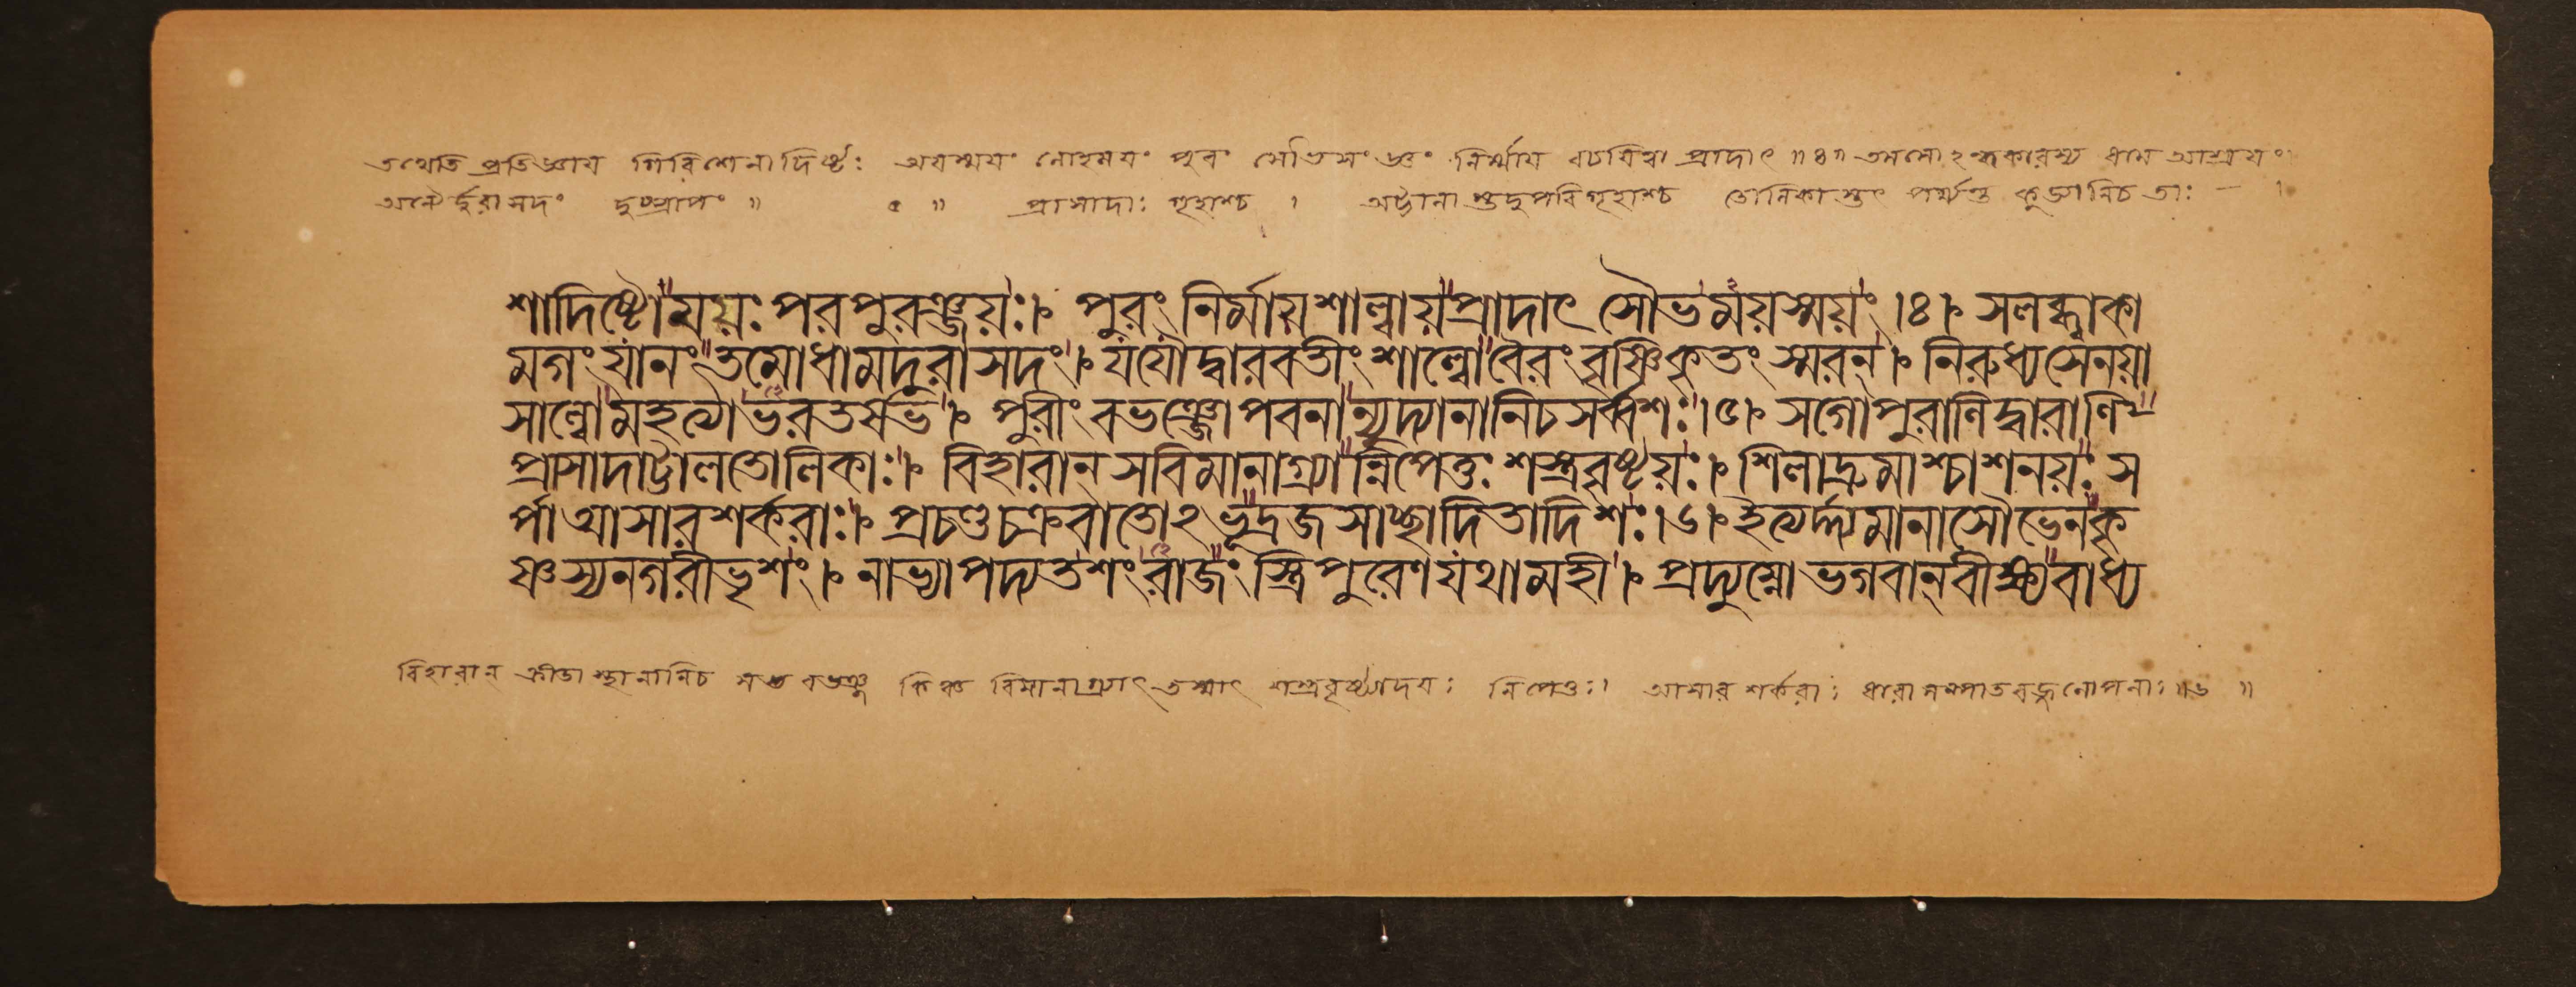 তথেতি প্রতিজ্ঞায় গিরিশেনাদিষ্টঃ অয়স্ময়ং লোহময়ং পুরং সৌভসংজ্ঞং নির্ম্মায় প্রাদাৎ ॥৪॥ তমসোঽন্ধকারস্য ধাম আশ্রয়ং।
অন্যৈর্দুরাসদং দুষ্প্রাপং ॥ ৫ ॥ প্রাসাদাঃ গৃহাশ্চ । অট্টালা স্তদুপরিগৃহাশ্চ তোলিকাস্তৎ পর্য্যন্ত কুড্যানিচ তাঃ — ।
শাদিষ্টৌময়ঃ পরপুরঞ্জয়ঃ।ৎ পুরং নির্মায়শাল্বায়প্রাদাৎ সৌভময়স্ময়ং ।৪।ৎ সলব্ধ্বাকা
মগং যানং তমোধামদুরাসদং।ৎ যযৌদ্বারবতীং শাল্বোবৈরং বৃষ্ণিকৃতং স্মরন্।ৎ নিরুধ্যসেনয়া
সাল্বোমহত্যাভরতর্ষভ।ৎ পুরীং বভঞ্জোপবনান্যুদ্যানানিচসর্ব্বশঃ।৫।ৎ সগোপুরাণিদ্বারাণি
প্রাসাদাট্টালতোলিকাঃ।ৎ বিহারান্ সবিমানাগ্র্যান্নিপেতুঃ শস্ত্রবৃষ্টয়ঃ।ৎ শিলাদ্রুমাশ্চাশনয়ঃ স
র্পাআসারশর্করাঃ।ৎ প্রচণ্ডচক্রবাতোঽভূদ্রজসাচ্ছাদিতাদিশঃ।৬।ৎ ইত্যর্দ্দ্যমানাসৌভেনকৃ
ষ্ণস্যনগরীভৃশং।ৎ নাভ্যাপদ্যতশংরাজংস্ত্রিপুরেণযথামহী।ৎ প্রদ্যুম্নোভগবান্‌বীক্ষ্যবাধ্য
বিহারান্ ক্রীডাস্থানানিচ বভঞ্জ কিঞ্চ বিমানাগ্র্যাৎ তস্মাৎ শস্ত্রবৃষ্ট্যাদয়ঃ নিপেতুঃ। আসারশর্করাঃ ধারাসম্পাত ঃ॥৬॥